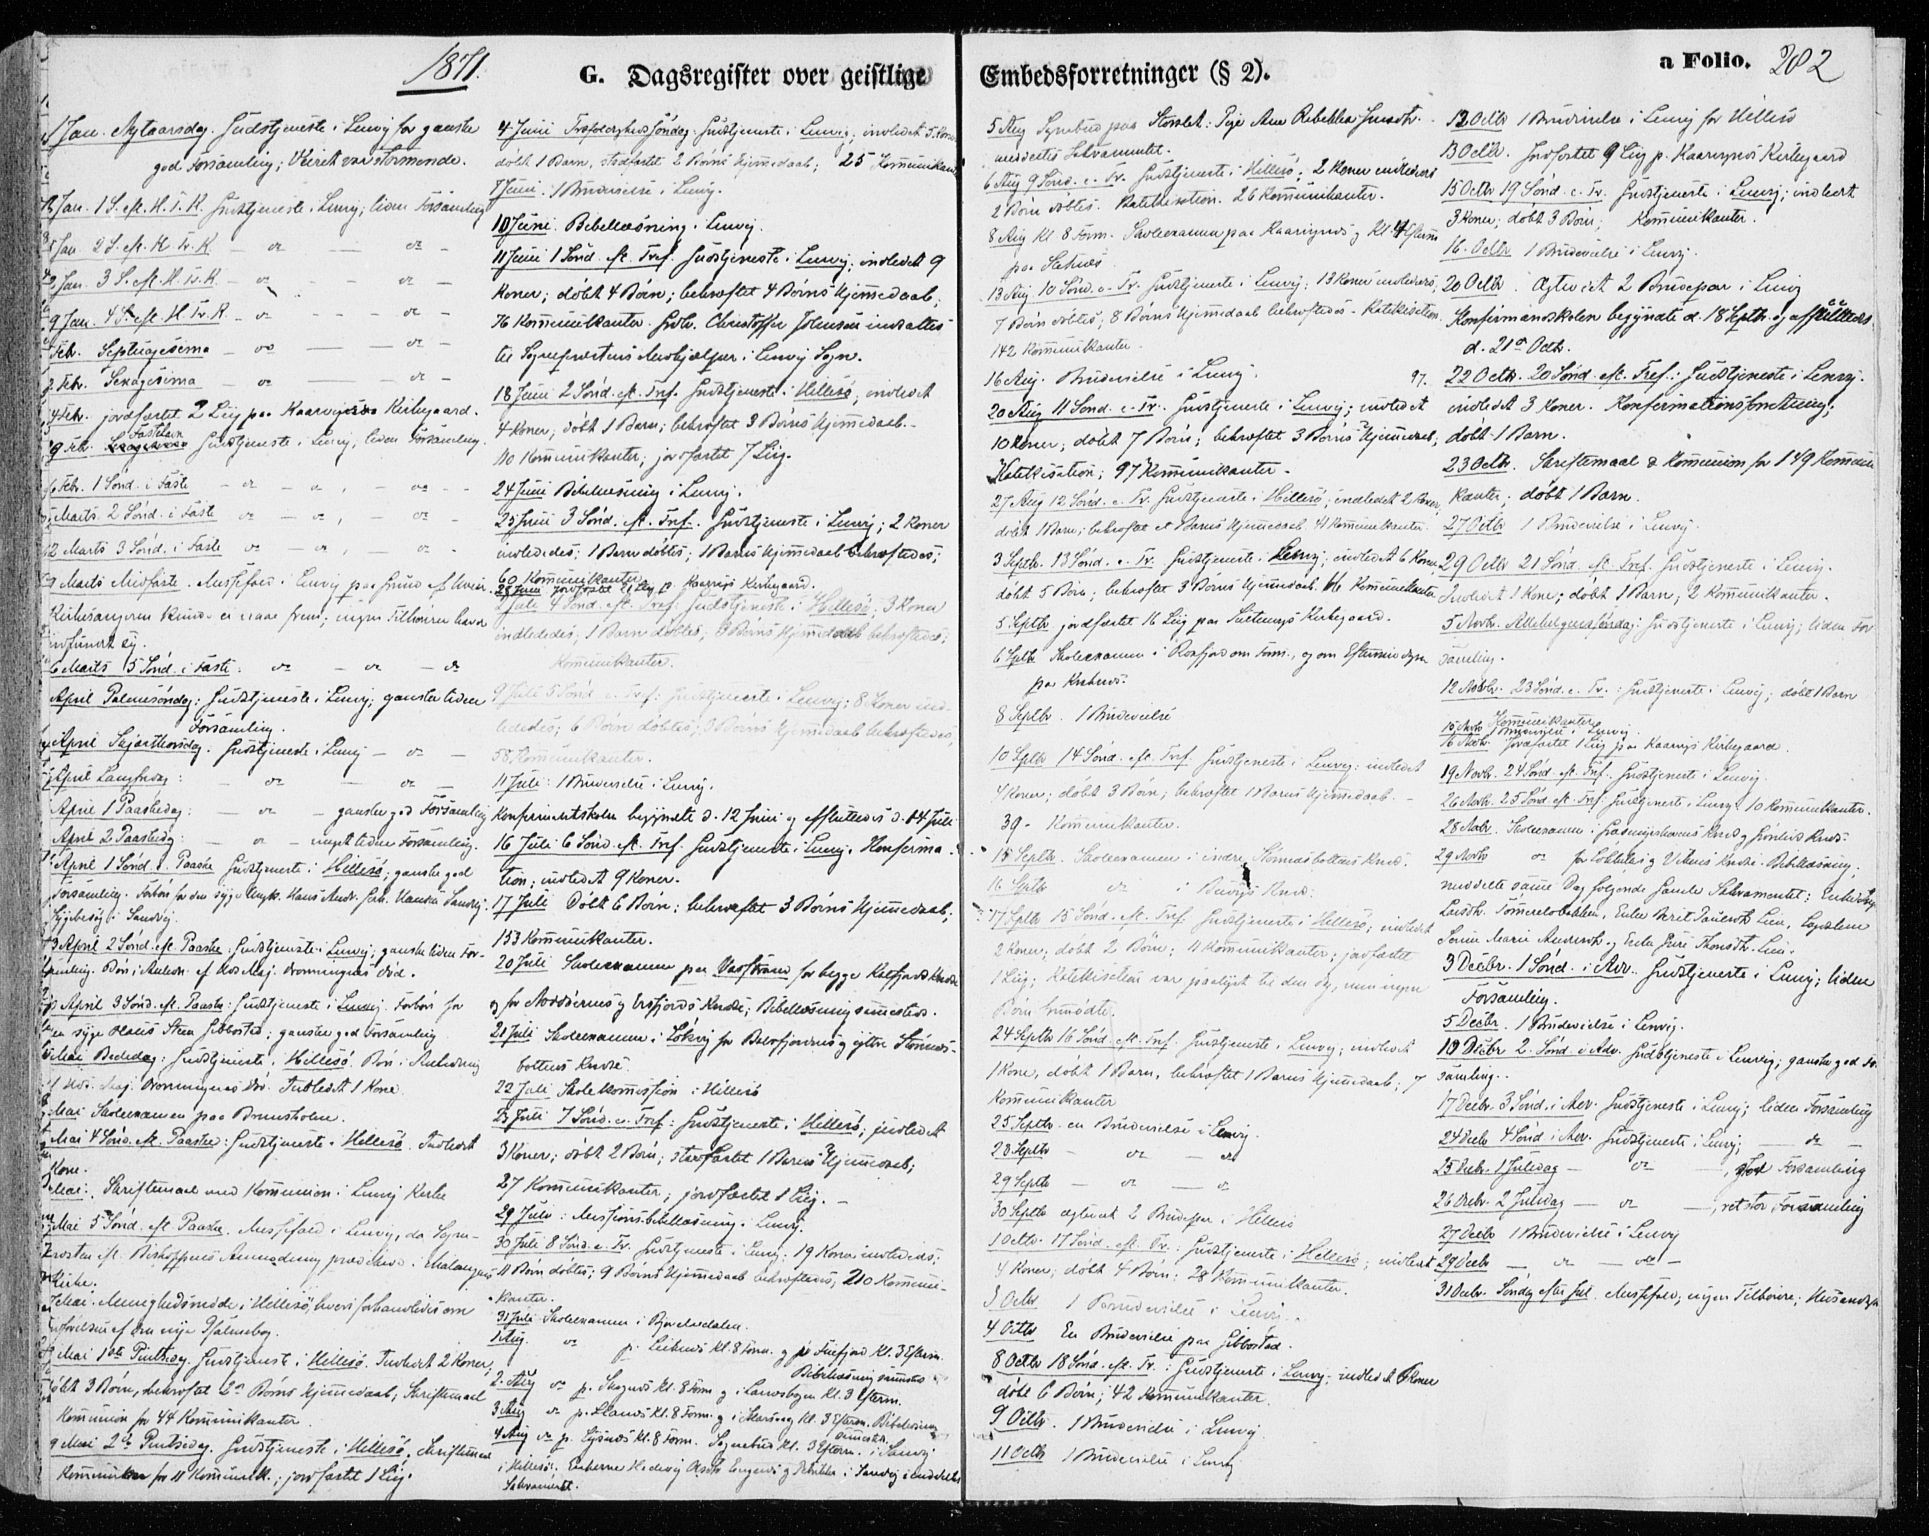 1871.
G. Dagsregister over geistlige Embedsforretninger (§ 2).
a Folio. 202
1 Jan. Nytaarsdag. Gudstjeneste i Lenvig for ganske
god Forsamling; Veiret var stormende.
Jan. 1 S. eft. H. T. K. Gudstjeneste i Lenvig; liden Forsamling
Jan. 2 S. eft. H. Tr. K. — do — do —
Jan. 3 S. eft. H. Tr. K. — do — do —
9 Jan. 4 S. eft. H. Tr. K. — do — do —
Feb. Septuagesima — do — do —
2 Feb. Sexagesima — do — do —
4 Feb. jordfæstet 2 Liig paa Kaarvigs Kirkegaard.
9 Feb. Fastelavn Gudstjeneste i Lenvig, liden Forsamling.
6 Feb. 1 Sønd. i Faste — do — do —
Marts 2 Sønd. i Faste do — do —
12 Marts 3 Sønd. i Faste do — do —
Marts Midfaste. Messefald i Lenvig paa Grund af Uveir
Kirkesangeren kunde ei naae frem; ingen Tilhørere havde
indfundet sig.
6 Marts 5 Sønd. i Faste: do — do — do
April Palmesøndag: Gudstjeneste i Lenvig; ganske liden
Forsamling.
April Skjærthorsdag. Gudstjeneste i Lenvig — do —
April Langfredag: — do — do —
April 1 Paaskedag: — do — ganske god Forsamling
April 2 Paaskedag: — do — meget liden Forsamling.
April 1 Sønd. e. Paaske Gudstjeneste i Hillesø; ganske god
Forsamling. Forbøn for den syge Ungk. Hans Andr.
Sygebesøg i Sandvig.
3 April 2 Sønd. eft. Paaske: Gudstjeneste i Lenvig; ganske liden For-
samling. Bøn i Anledn. af Hds Maj. Dronningens Død.
April 3 Sønd. eft. Paaske: Gudstjeneste i Lenvig. Forbøn for
en syge Olaus Steen Gibbostad; ganske god Forsamling
Mai Bededag: Gudstjeneste i Hillesø. Bøn i Anledning
af Hds. Maj. Dronningens Død. Indledet 1 Kone
Mai Skoleexamen paa Brensholm.
Mai 4 Sønd. eft. Paaske: Gudstjeneste i Hillesø. Indledet
Kone.
Mai: Skriftemaal med Kommunion i Lenvig Kirke
Mai 5 Sønd. eft. Paaske. Messefald i Lenvig, da Sogne-
præsten eft. Biskoppens Anmodning prædikede i Malangens
Kirke.
Mai. Menighedsmøde i Hillesø, hvori forhandledes om
Indførelsen af den nye Psalmebog.
Mai 1ste Pintsedag. Gudstjeneste i Hillesø. Indledt 2 Koner,
døbt 3 Børn, bekræftet 2 Børns Hjemmedaab; Skriftemaal
Kommunion for 44 Kommunikanter.
9 Mai 2den Pintsedag. Gudstjeneste i Hillesø, Skriftemaal
Kommunion for 11 Kommunik.; jordfæstet 1 Liig.
4 Juni Trefoldighedssøndag. Gudstjeneste i Lenvig; indledet 5 Koner
døbt 1 Barn, stadfæstet 2 Børns Hjemmedaab; 25 Kommunikanter
7 Juni. 1 Brudevielse i Lenvig.
10 Juni. Bibellæsning i Lenvig.
11 Juni 1 Sønd. eft. Tref. Gudstjeneste i Lenvig; indledet 9
Koner; døbt 4 Børn; bekræftet 4 Børns Hjemmedaab;
76 Kommunikanter. Gaardbr. Christoffer Johnsen indsattes
til Sognepræstens Medhjælper i Lenvig Sogn.
18 Juni 2 Sønd. eft. Tref. Gudstjeneste i Hillesø; indledet
4 Koner; døbt 1 Barn; bekræftet 3 Børns Hjemmedaab.
110 Kommunikanter; jordfæstet 7 Liig.
24 Juni Bibellæsning i Lenvig.
25 Juni 3 Sønd. eft. Tref. Gudstjeneste i Lenvig; 2 Koner
indlededes; 1 Barn døbtes; 1 Barns Hjemmedaab bekræftedes;
60 Kommunikanter.
28 Juni jordfæstet Liig p. Kaarvigs Kirkegaard.
2 Juli 4 Sønd. eft. Tref: Gudstjeneste i Hillesø; 3 Koner
indlededes; 1 Barn døbtes; 3 Børns Hjemmedaab bekræftedes;
Kommunikanter.
9 Juli 5 Sønd. e. Tref: Gudstjeneste i Lenvig: 8 Koner ind-
lededes; 6 Børn døbtes; 3 Børns Hjemmedaab bekræftedes,
58 Kommunikanter.
11 Juli: 1 Brudevielse i Lenvig.
Konfirmantskolen begyndte d. 12 Juni og afsluttedes d. 14 Juli
16 Juli 6 Sønd. eft. Tref. Gudstjeneste i Lenvig. Konfirma-
tion; indledet 9 Koner.
17 Juli Døbt 6 Børn; bekræftet 3 Børns Hjemmedaab.
153 Kommunikanter.
20 Juli Skoleexamen paa Vasstrand for begge Kattfjords Kredse
og for Nordøernes og Ersfjords Kredse; Bibellæsning sammesteds.
21 Juli Skoleexamen i Løkvig for Balsfjordens og ytre Stønnes-
bottens Kredse.
22 Juli Skolekommission i Hillesø
23 Juli 7 Sønd. e. Tref: Gudstjeneste i Hillesø; indledet
3 Koner; døbt 2 Børn; stadfæstet 1 Barns Hjemmedaab;
27 Kommunikanter; jordfæstet 1 Liig. —
29 Juli: Missionsbibellæsning i Lenvig.
30 Juli 8 Sønd. e. Tr. Gudstjeneste i Lenvig. 19 Koner indlededes;
11 Børn døbtes; 9 Børns Hjemmedaab bekræftedes; 210 Kommuni-
kanter.
31 Juli Skoleexamen i Bjorelvdalen.
1 Aug. do p. Leiknes Kl. 8 Form. og p. Finfjord Kl. 3 Efterm.
Bibellæsning sammesteds
2 Aug do p. Skognes Kl. 8 Form. og i Laukvog Kl. 3 Efterm.
3 Aug do p. Klaues Kl. 8 Form. og i Kl. 3 Efterm. Bibellæsning
sammesteds.
4 Aug do p. Kl. 8 Form. Sognebud Kl. 3 Efterm. i Sandvig
i Hillesø: Enkerne Hedevig og i Sandvig meddeltes
Sakramentet.
5 Aug Sognebud paa Storslet: Pige Ane Rebekka Jensdtr.
meddeltes Sakramentet.
6 Aug 9 Sønd. e. Tr. Gudstjeneste i Hillesø; 2 Koner indlededes
2 Børn døbtes. Katekisation. 26 Kommunikanter.
8 Aug Kl. 8 Form. Skoleexamen paa Kaarvignes og Kl. 4 Efterm
paa
13 Aug 10 Sønd. e. Tr. Gudstjeneste i Lenvig; 13 Koner indlededes;
7 Børn døbtes; 8 Børns Hjemmedaab bekræftedes. Katekisation.
142 Kommunikanter.
16 Aug. Brudevielse i Lenvig. 97.
20 Aug 11 Sønd. e. Tr. Gudstjeneste i Lenvig; indledet
10 Koner; døbt 7 Børn; bekræftet 3 Børns Hjemmedaab;
Katekisation; 97 Kommunikanter.
27 Aug 12 Sønd. e. Tr. Gudstjeneste i Hillesø; indledet 2 Koner,
døbt 1 Barn; bekræftet et Barns Hjemmedaab 41 Kommunikanter.
3 Septb. 13 Sønd. e. Tr. Gudstjeneste i Lenvig; indledet 6 Koner
døbt 5 Børn; bekræftet 3 Børns Hjemmedaab. Kommunikanter
5 Septbr jordfæstet 16 Liig paa Kirkegaard.
6 Septb Skoleexamen i Rossfjord om Form. og om Eftermiddagen
paa
8 Septb. 1 Brudevielse
10 Septb 14 Sønd. eft. Tref Gudstjeneste i Lenvig; indledet
4 Koner; døbt 3 Børn; bekræftet 1 Barns Hjemmedaab. —
39 - Kommunikanter.
15 Septb. Skoleexamen i indre Stønnesbottens Kreds.
16 Septb do i Kreds.
17 Septb 15 Sønd. eft. Tref Gudstjeneste i Hillesø; indledet
2 Koner; døbt 2 Børn; 11 Kommunikanter; jordfæstet
1 Liig; Katekisation var paalyst til den Dag, men ingen
Børn fremmødte.
24 Septb 16 Sønd. eft. Tref. Gudstjeneste i Lenvig; indledet
1 Kone, døbt 1 Barn, bekræftet 1 Barns Hjemmedaab; 7
Kommunikanter
25 Septb en Brudevielse i Lenvig.
28 Septb — do — do
29 Septb — do — do
30 Septb ægteviet 2 Brudepar i Hillesø
1 Octbr. 17 Sønd. eft. Tr.: Gudstjeneste i Hillesø; indledet
4 Koner; døbt 4 Børn; 28 Kommunikanter.
3 Octb 1 Brudevielse i Lenvig.
4 Octb En Brudevielse paa Gibbostad.
8 Octb 18 Sønd. eft. Tr.: Gudstjeneste i Lenvig; indledet Koner
døbt 6 Børn; 42 Kommunikanter.
9 Octb. 1 Brudevielse i Lenvig.
11 Octb 1 Brudevielse i Lenvig
12 Octb 1 Brudevielse i Lenvig for Hillesø
13 Octb. Jordfæstet 9 Liig p. Kaarvignes Kirkegaard
15 Octb 19 Sønd. e. Tr. Gudstjeneste i Lenvig; indledt
3 Koner; døbt 3 Børn; Kommunikanter.
16. Octb 1 Brudevielse i Lenvig.
20 Octb. Ægteviet 2 Brudepar i Lenvig
Konfirmandskolen begyndte d. 18 Septb. og afsluttedes
d. 21de Octb.
22 Octb. 20 Sønd. eft. Tref.: Gudstjeneste i Lenvig.
indledet 3 Koner. Konfirmationsforretning;
døbt 1 Barn.
23 Octb. Skriftemaal & Kommunion for 149 Kommuni-
kanter; døbt 1 Barn.
27 Octb 1 Brudevielse i Lenvig.
29 Octb 21 Sønd. eft. Tref. Gudstjeneste i Lenvig.
Indledet 1 Kone; døbt 1 Barn; 2 Kommunikanter.
5 Novb. Allehelgenssøndag: Gudstjeneste i Lenvig; liden For
samling.
12 Novb. 23 Sønd. e. Tr.: Gudstjeneste i Lenvig; døbt 1 Barn
Kommunikanter
15 Novb 1 Brudevielse i Lenvig.
16 Novb. Jordfæstet 1 Liig paa Kaarvigs Kirkegaard.
19 Novb. 24 Sønd. eft. Tref. Gudstjeneste i Lenvig.
26 Novb. 25 Sønd. eft. Tref: Gudstjeneste i Lenvig. 10 Kommunikanter.
28 Novb. Skoleexamen i Kreds og Kreds.
29 Novb do for og Kredse. Bibellæsning;
meddelte samme Dag følgende Gamle Sakramentet: Enke
Larsdtr. Tømmerelvbakken, Enke Berit
Marie Andersdtr. og Enke
3 Decbr. 1 Sønd. i Adv. Gudstjeneste i Lenvig; liden
Forsamling.
5 Decbr. 1 Brudevielse i Lenvig.
10 Decbr 2. Sønd. i Adv. Gudstjeneste i Lenvig; ganske god For
samling.
17 Decbr. 3 Sønd. i Adv. Gudstjeneste i Lenvig; liden Forsamling
24 Decb 4 Sønd i Adv. Gudstjeneste i Lenvig; — do —
25 Decb. 1 Juledag — do — god Forsamling
26 Decbr. 2 Juledag — do — , ret stor Forsamling
27 Decb 1 Brudevielse i Lenvig
29 Decb — do — do —
31 Decbr. Søndag efter Jul. Messefald; ingen Tilhørere; Husandagt